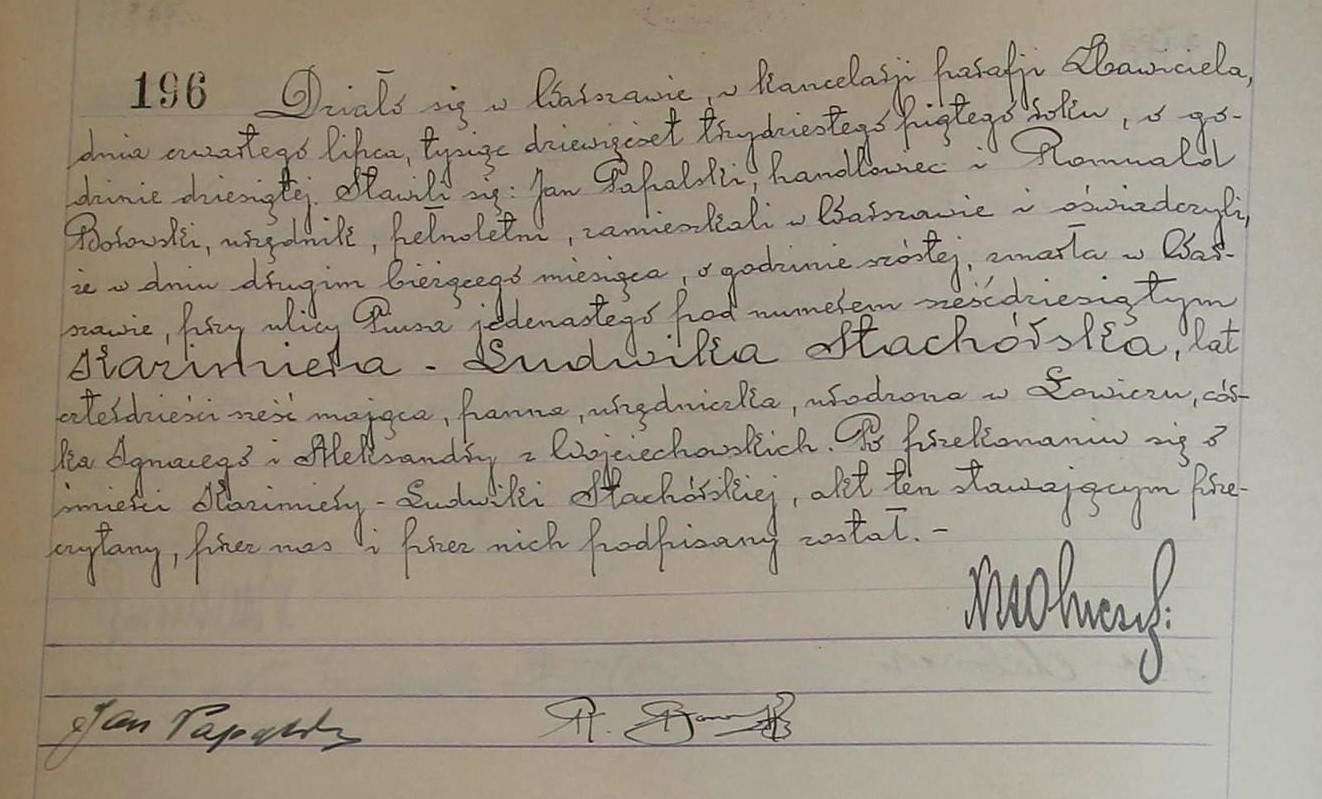 196 Działo się w Warszawie, w kancelarji parafji Zbawiciela,
dnia czwartego lipca, tysiąc dziewięćset trzydziestego piątego roku, o go-
dzinie dziesiątej. Stawili się: Jan Papalski, handlowiec i Romuald
Borowski, urzędnik, pełnoletni, zamieszkali w Warszawie i oświadczyli,
że w dniu drugim bieżącego miesiąca, o godzinie szóstej, zmarła w War-
szawie, przy ulicy Prusa jedenastego pod numerem sześćdziesiątym
Kazimiera - Ludwika Stachórska, lat
czterdzieści sześć mająca, panna, urzędniczka, urodzona w Łowiczu, cór-
ka Ignacego i Aleksandry z Wojciechowskich. Po przekonaniu się o
śmierci Kazimiery - Ludwiki Stachórskiej, akt ten stawającym prze-
czytany, przez nas i przez nich podpisany został. -
Jan Papalski R.